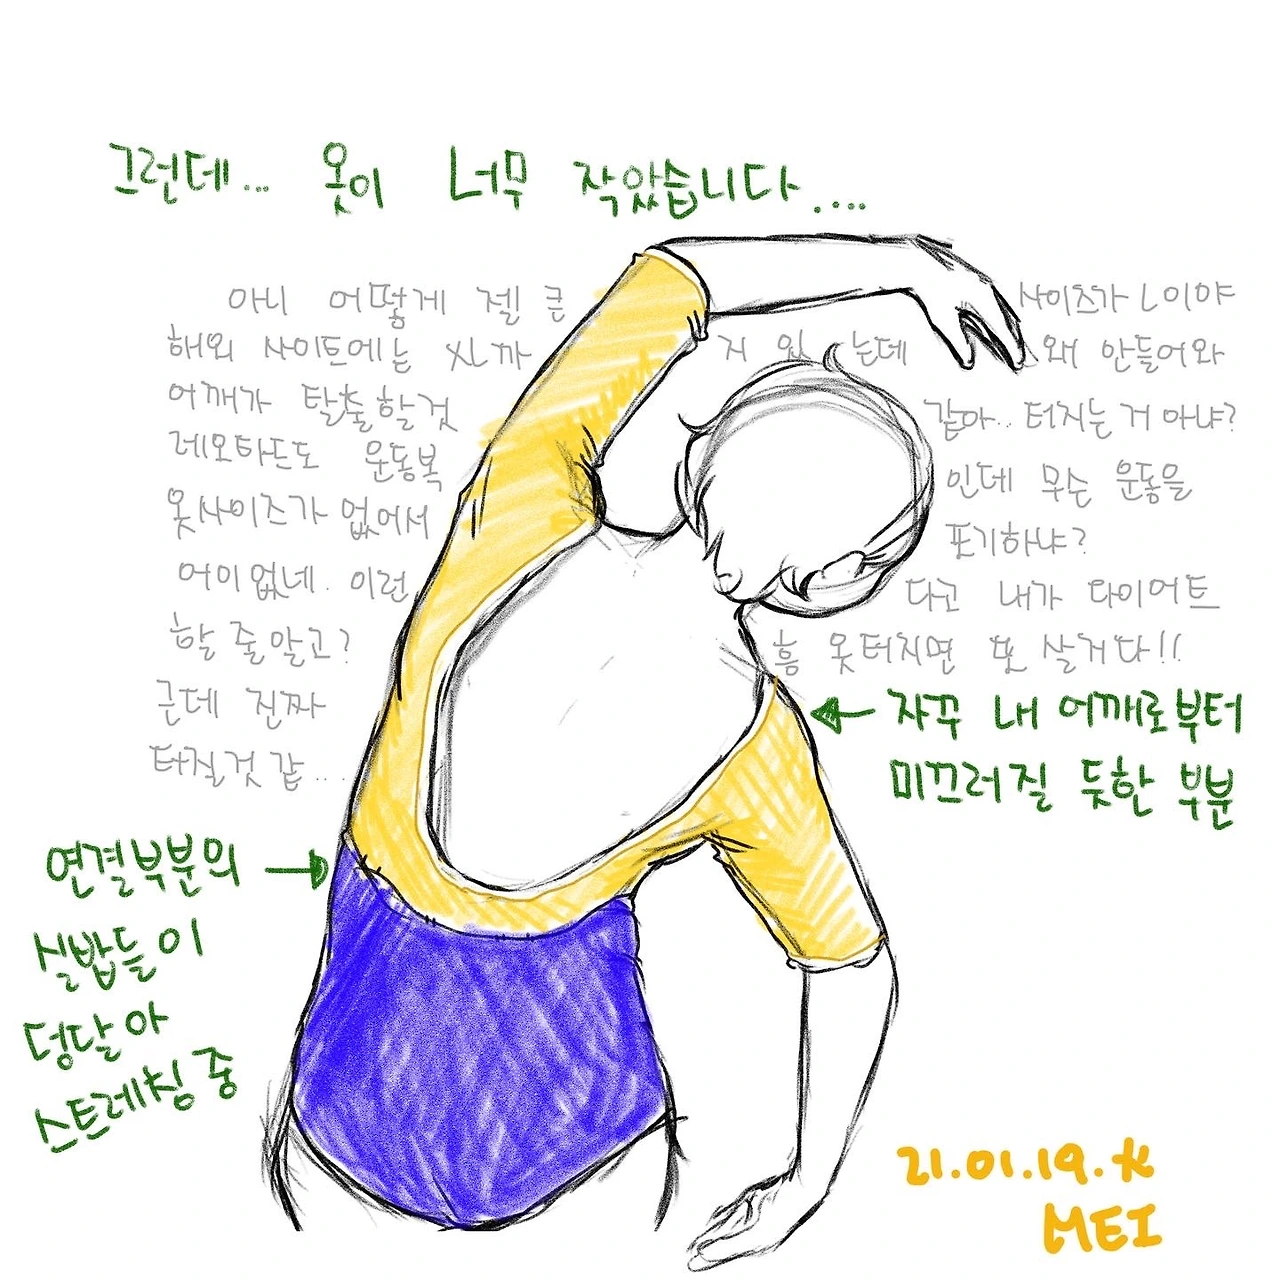 그런데... 옷이 너무 작았습니다....
아니 어떻게 젤 큰 사이즈가 L이야
해외 사이트에는 XL까지 있는데 왜 안들어와
어깨가 탈출할것 같아.. 터지는 거 아냐?
레오타드도 운동복 인데 무슨 운동을
옷사이즈가 없어서 포기하냐?
어이없네. 이런 다고 내가 다이어트
할 줄 알고? 흠 옷터지면 또 살거다!!
근데 진짜
터질것 같...
← 자꾸 내 어깨로부터
미끄러질 듯한 부분
연결부분의 →
실밥들이
덩달아
스트레칭 중
21.01.19.火
MEI